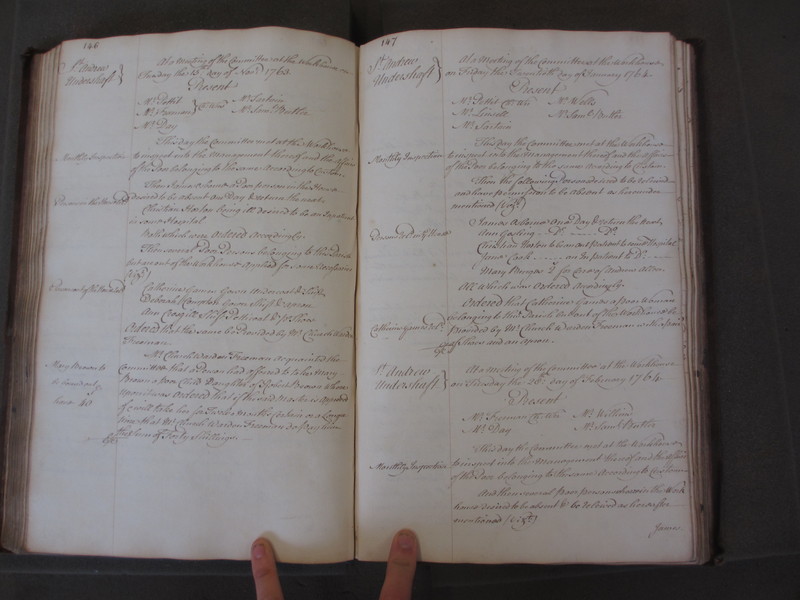 146
St. Andrew
Undershaft
At a Meeting of the Committee at the Workhouse on
Tuesday the 15 day of Novr. 1763
Present
Mr. Pettit Mr. Sartain
Mr. Freeman Ch: Wns Mr. Saml. Butler
Mr. Day
This day the Committee met at this Workhouse
Monthly Inspection
to inspect into the Management thereof and the Affairs
of the Poor belonging to the same According to Custom
Then
desired to be absent one Day & return the next
Christian Harlow being ill desired to be an
in some Hospital
Both which were Ordered Accordingly
Then several Poor Persons belonging to this Parish
but out of the Workhouse applied for some Necessaries
(Vizt)
Catherine Gawen Gown
Deborah Campbell Gown Shift & Apron
Ann Shift Petticoat & pr. Shoes
Ordered that the same be Provided by Mr. Church Warden
Freeman
Mr. Church Warden Freeman acquainted the
Mary Brown to
Committee that a Person had offered to take Mary
Brown a Poor Child Daughter of Brown
Ordered that if the said Master
will take her for Twelve Months Certain or a Longer
time that Mr. Church Warden Freeman do pay him
the sum of Forty Shillings
147
St. Andrew
Undershaft
At a Meeting of the Committee at the Workhouse
on Friday the Twentieth day of January 1764
Present
Mr. Pettit Ch: Wn Mr. Wells
Mr. Linsell Mr. Saml. Butler
Mr. Sartain
This day the Committee met at the Workhouse
Monthly Inspection
to inspect into the Management thereof and the Affairs
of the Poor belonging to the same According to Custom
Then the following Persons desired to be relieved
and have permission to be Absent as hereunder
mentioned (Vizt)
James one Day & return the next
Ann Gosling Do. Do.
Christian Harlow to be an out patient to some Hospital
Jane Cook an In patient to Do.
Mary Burges
All which were Ordered Accordingly
Ordered that Catherine Gawen a poor Woman
belonging to this Parish but out of the Workhouse be
provided by Mr. Church Warden Freeman with a pair
of Shoes and an Apron
St. Andrew
Undershaft
At a meeting of the Committee at the Workhouse
on Tuesday the 28th. day of February 1764
Present
Mr. Freeman Ch: Wn Mr. Wilkins
Mr. Day Mr. Saml. Butler
This day the Committee met at the Workhouse
Monthly Inspection
to inspect into the Management thereof and the Affairs
of the Poor belonging to the same According to Custom
And then several poor persons in the Work
house desired to be absent & be relieved as hereafter
mentioned (Vizt)
James